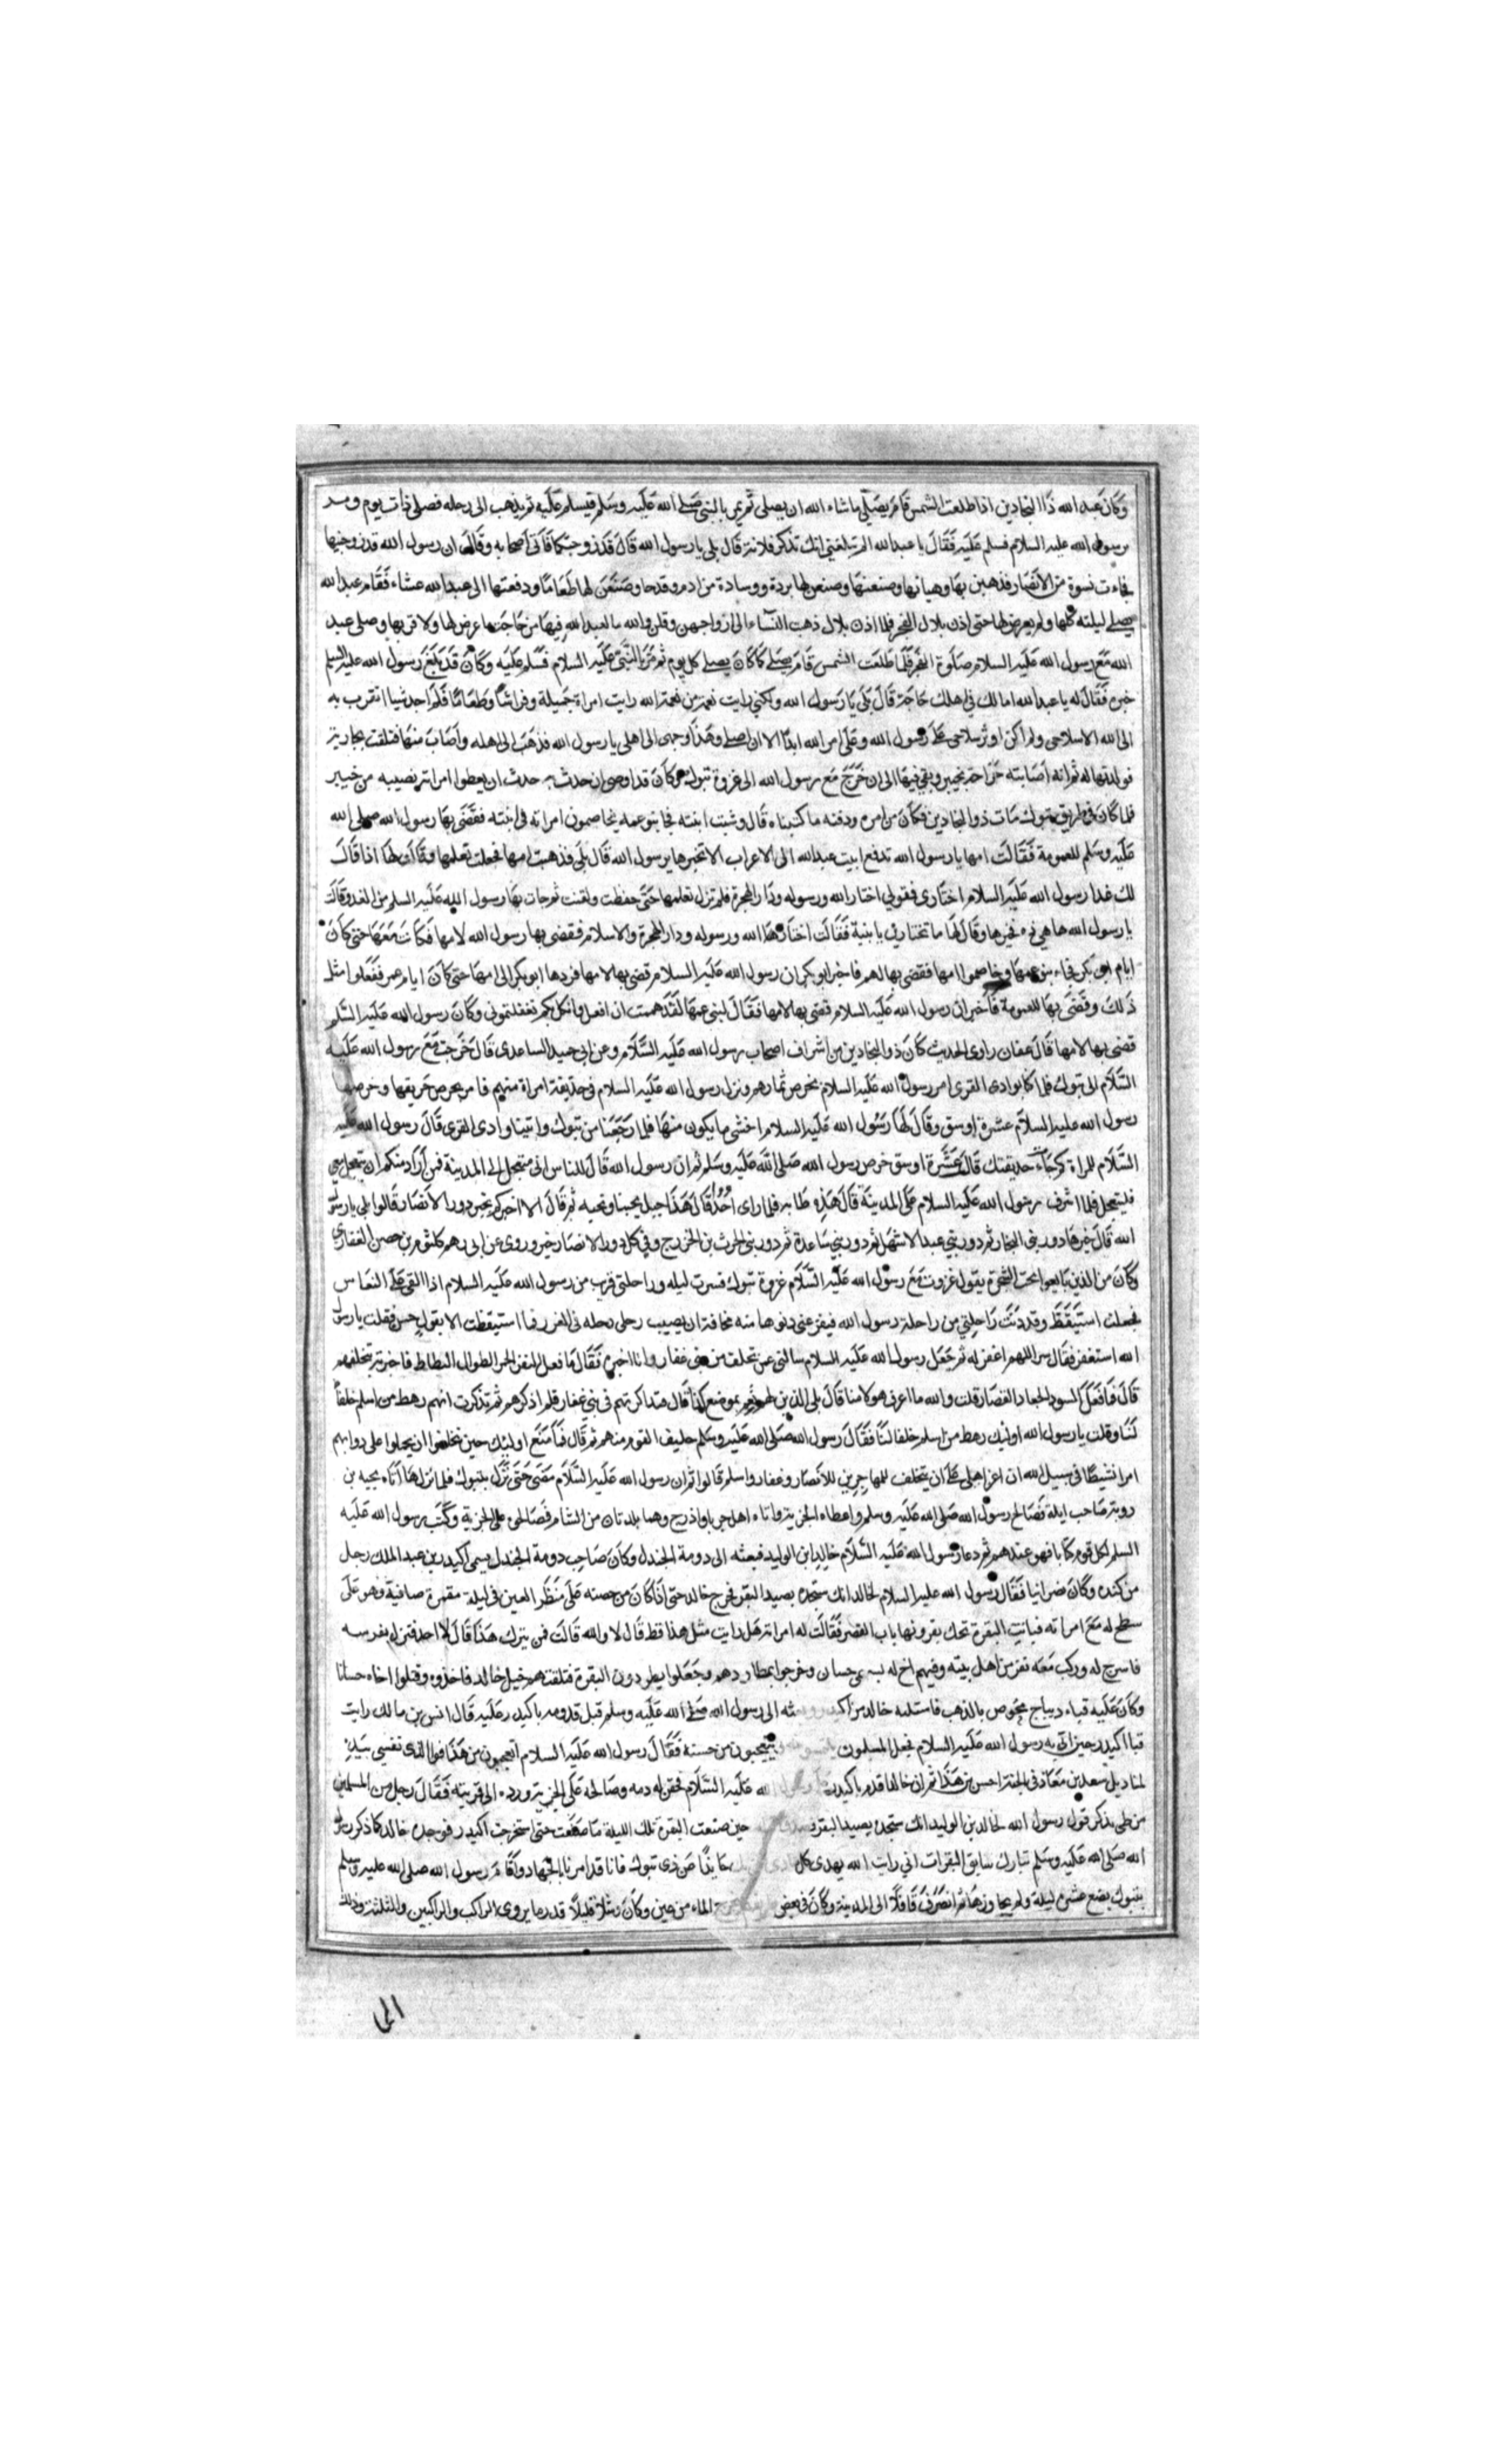 وكان عبد الله ذا البجادين اذا طلعت الشمس قام يصلي ما شاء الله ان يصلي ثم يمر بالنبي صلى الله عليه وسلم فيسلم عليه ثم يذهب الى رحله فصلى ذات يوم ومر
برسول الله عليه السلام فسلم عليه فقال يا عبد الله الم تبلغني انك تذكر فلانة قال بلى يا رسول الله قال قد زوجتكها فاتى اصحابه وقال ان رسول الله قد زوجنيها
فجاءت نسوة من الانصار فذهبن بها وهيانها وصنعنها وصنعن لها بردة ووسادة من ادم وقدحا وصنعن لها طعاما ودفعتها الى عبد الله عشاء فقام عبد الله
يصلي ليلته كلها ولم يعرض لها حتى اذن بلال الفجر فلما اذن بلال ذهب النساء الى ازواجهن وقلن والله ما لعبد الله فيها من حاجة ما عرض لها ولا قربها وصلى عبد
الله مع رسول الله عليه السلام صلوة الفجر فلما طلعت الشمس قام يصلي كما كان يصلي كل يوم ثم مر بالنبي عليه السلام فسلم عليه وكان قد بلغ رسول الله عليه السلم
خبره فقال له يا عبد الله اما لك في اهلك حاجة قال بلى يا رسول الله ولكني رايت نعمة من نعمة الله رايت امراة جميلة وفراشا وطعاما فلم اجد شيا اتقرب به
الى الله الا سلاحي ولم اكن اوثر سلاحي على رسول الله وعلى امر الله ابدا الا ان اصلي وهذا وجهي الى اهلي يا رسول الله فذهب الى اهله واصاب منها فتلقت بجارية
فولدتها له ثم انه اصابته جراحة بخيبر وبقي فيها الى ان خرج مع رسول الله الى غزوة تبوك وكان قد اوصى ان حدث به حدث ان يعطوا امراته نصيبه من خيبر
فلما كان في طريق تبوك مات ذو البجادين فكان من امره ودفنه ما كتبناه قال وشبت ابنته فجا بنو عمه يخاصمون امراته في ابنته فقضى بها رسول الله صلى الله
عليه وسلم للعمومة فقالت امها يا رسول الله تدفع ابنت عبد الله الى الاعراب الا تخيرها يرسول الله قال بلى فذهبت امها فجعلت تعلمها وقالت لها اذا قال
لك غدا رسول الله عليه السلام اختاري فقولي اختار الله ورسوله ودار الهجرة فلم تزل تعلمها حتى حفظت ولقنت ثم جات بها رسول الله عليه السلم من الغد وقالت
يا رسول الله ها هي ذه فخيرها وقال لها ما تختارين يا بنية فقالت اختار الله ورسوله ودار الهجرة والاسلام فقضى بها رسول الله لامها فكانت معها حتى كان
ايام ابي بكر فجاء بنو عمها وخاصموا امها فقضى بها لهم فاخبر ابو بكر ان رسول الله عليه السلام قضى بها لامها فردها ابو بكر الى امها حتى كان ايام عمر ففعلوا مثل
ذلك وقضى بها للعمومة فاخبر ان رسول الله عليه السلام قضى بها لامها فقال لبني عمها لقد هممت ان افعل وانكل بكم تغفلتموني وكان رسول الله عليه السلم
قضى بها لامها قال عفان راوي الحديث كان ذو البجادين من اشراف اصحاب رسول الله عليه السلام وعن ابي حميد الساعدي قال خرجت مع رسول الله عليه
السلام الى تبوك فلما كنا بوادي القرى امر رسول الله عليه السلام بخرص ثمارهم ونزل رسول الله عليه السلام في حديقة امراة منهم فامر بخرص خريفها وخرصها
رسول الله عليه السلام عشرة اوسق وقال لها رسول الله عليه السلام احشي ما يكون منها فلما رجعنا من تبوك واتينا وادي القرى قال رسول الله عليه
السلام للمراة كم جاءت حديقتك قالت عشرة اوسق خرص رسول الله صلى الله عليه وسلم ثم ان رسول الله قال للناس اني متعجل الى المدينة فمن اراد منكم ان يتعجل معي
فليتعجل فلما اشرف رسول الله عليه السلام على المدينة قال هذه طابه فلما راى احدا قال هذا جبل يحبنا ونحبه ثم قال الا اخبركم بخير دور الانصار قالوا بلى يا رسول
الله قال خيرها دور بني النجار ثم دور بني عبد الاشهل ثم دور بني ساعدة ثم دور بني الحرث بن الخزرج وفي كل دور الانصار خير وروى عن ابي رهم كلثوم بن حصن الغفاري
وكان من الذين بايعوا تحت الشجرة يقول غزوت مع رسول الله عليه السلام غزوة تبوك فسرت ليله وراحلتي قرب من رسول الله عليه السلام اذا القي علي النعاس
فجعلت استيقظ وقد دنت راحلتي من راحلة رسول الله فيفزعني دنوها منه مخافة ان يصيب رحلي رحله في الغرز فما استيقظت الا بقول حس فقلت يا رسول
الله استغفر فقال سر اللهم اغفر له ثم جعل رسول الله عليه السلام سالني عمن تخلف من بني غفار وانا اخبره فقال ما فعل النفر الحمر الطوال النطاط فاخبرته بتخلفهم
قال فما فعل السود الجعاد القصار قلت والله ما اعرف هولا منا قال بلى الذين لهم نعم بموضع كذا قال فتذاكرتهم في بني غفار فلم اذكرهم ثم تذكرت انهم رهط من اسلم خلفا
لنا وقلت يا رسول الله اوليك رهط من اسلم خلفا لنا فقال رسول الله صلى الله عليه وسلم حليف القوم منهم ثم قال فما منع اوليك حين تخلفوا ان يحملوا على دوابهم
امرا نشيطا في سبيل الله ان اعز اهلي علي ان يتخلف للمهاجرين للانصار وغفار واسلم قالوا ثم ان رسول الله عليه السلام مضى حتى نزل بتبوك فلما نزلها اتاه يحيه بن
روبة صاحب ايلة فصالح رسول الله صلى الله عليه وسلم واعطاه الجزية واتاه اهل جربا واذرح وهما بلدتان من الشام فصالحهم على الجزية وكتب رسول الله عليه
السلم لكل قوم كتابا فهو عندهم ثم دعا رسول الله عليه السلام خالد ابن الوليد فبعثه الى دومة الجندل وكان صاحب دومة الجندل يسمى اكيدر بن عبد الملك رجل
من كنده وكان نصرانيا فقال رسول الله عليه السلام لخالد انك ستجده يصيد البقر فخرج خالد حتى اذا كان من حصنه على منظر العين في ليلة مقمرة صافية وهو على
سطح له مع امراته فباتت البقرة تحك بقرونها باب القصر فقالت له امراته هل رايت مثل هذا قط قال لا والله قالت فمن يترك هذا قال لا احد فنزل بفرسه
فاسرج له وركب معه نفر من اهل بيته وفيهم اخ له يسمى حسان وخرجوا بمطاردهم وجعلوا يطردون البقرة فتلقتهم خيل خالد فاخذوه وقتلوا اخاه حسانا
وكان عليه قباء ديباج مخوص بالذهب فاستلبه خالد من اكيدر وبعثه الى رسول الله صلى الله عليه وسلم قبل قدومه باكيدر عليه قال انس بن مالك رايت
قبا اكيدر حين اتي به رسول الله عليه السلام فجعل المسلمون يلمسونه يتعجبون من حسنه فقال رسول الله عليه السلام اتعجبون من هذا فوالذي نفسي بيده
لمناديل سعد بن معاذ في الجنة احسن من هذا ثم ان خالدا قدم باكيدر على رسول الله عليه السلام فحقن له دمه وصالحه على الجزية ورده الى قريته فقال رجل من المسلمين
من طي يذكر قول رسول الله لخالد بن الوليد انك ستجده يصيد البقر حين صنعت البقرة تلك الليلة ما صنعت حتى استخرجت اكيدر فوجده خالد كما ذكر رسول
الله صلى الله عليه وسلم تبارك سايق البقرات اني رايت الله يهدي كل هادي فمن يك حايدا عن ذي تبوك فانا قد امرنا بالجهاد واقام رسول الله صلى الله عليه وسلم
بتبوك بضع عشرة ليلة ولم يجاوزها ثم انصرف قافلا الى المدينة وكان في بعض الماء من عين وكان وشلا قليلا قدر ما يروي الراكب والراكبين والثلثة وذلك
الى